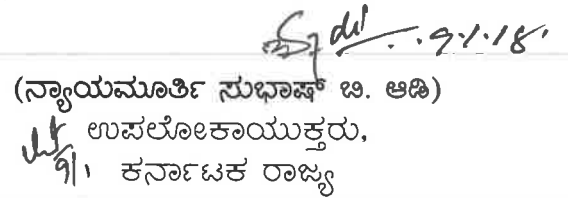 9.1.18.
(ನ್ಯಾಯಮೂರ್ತಿ ಸುಭಾಷ್ ಬಿ. ಆಡಿ)
ಉಪಲೋಕಾಯುಕ್ತರು,
ಕರ್ನಾಟಕ ರಾಜ್ಯ